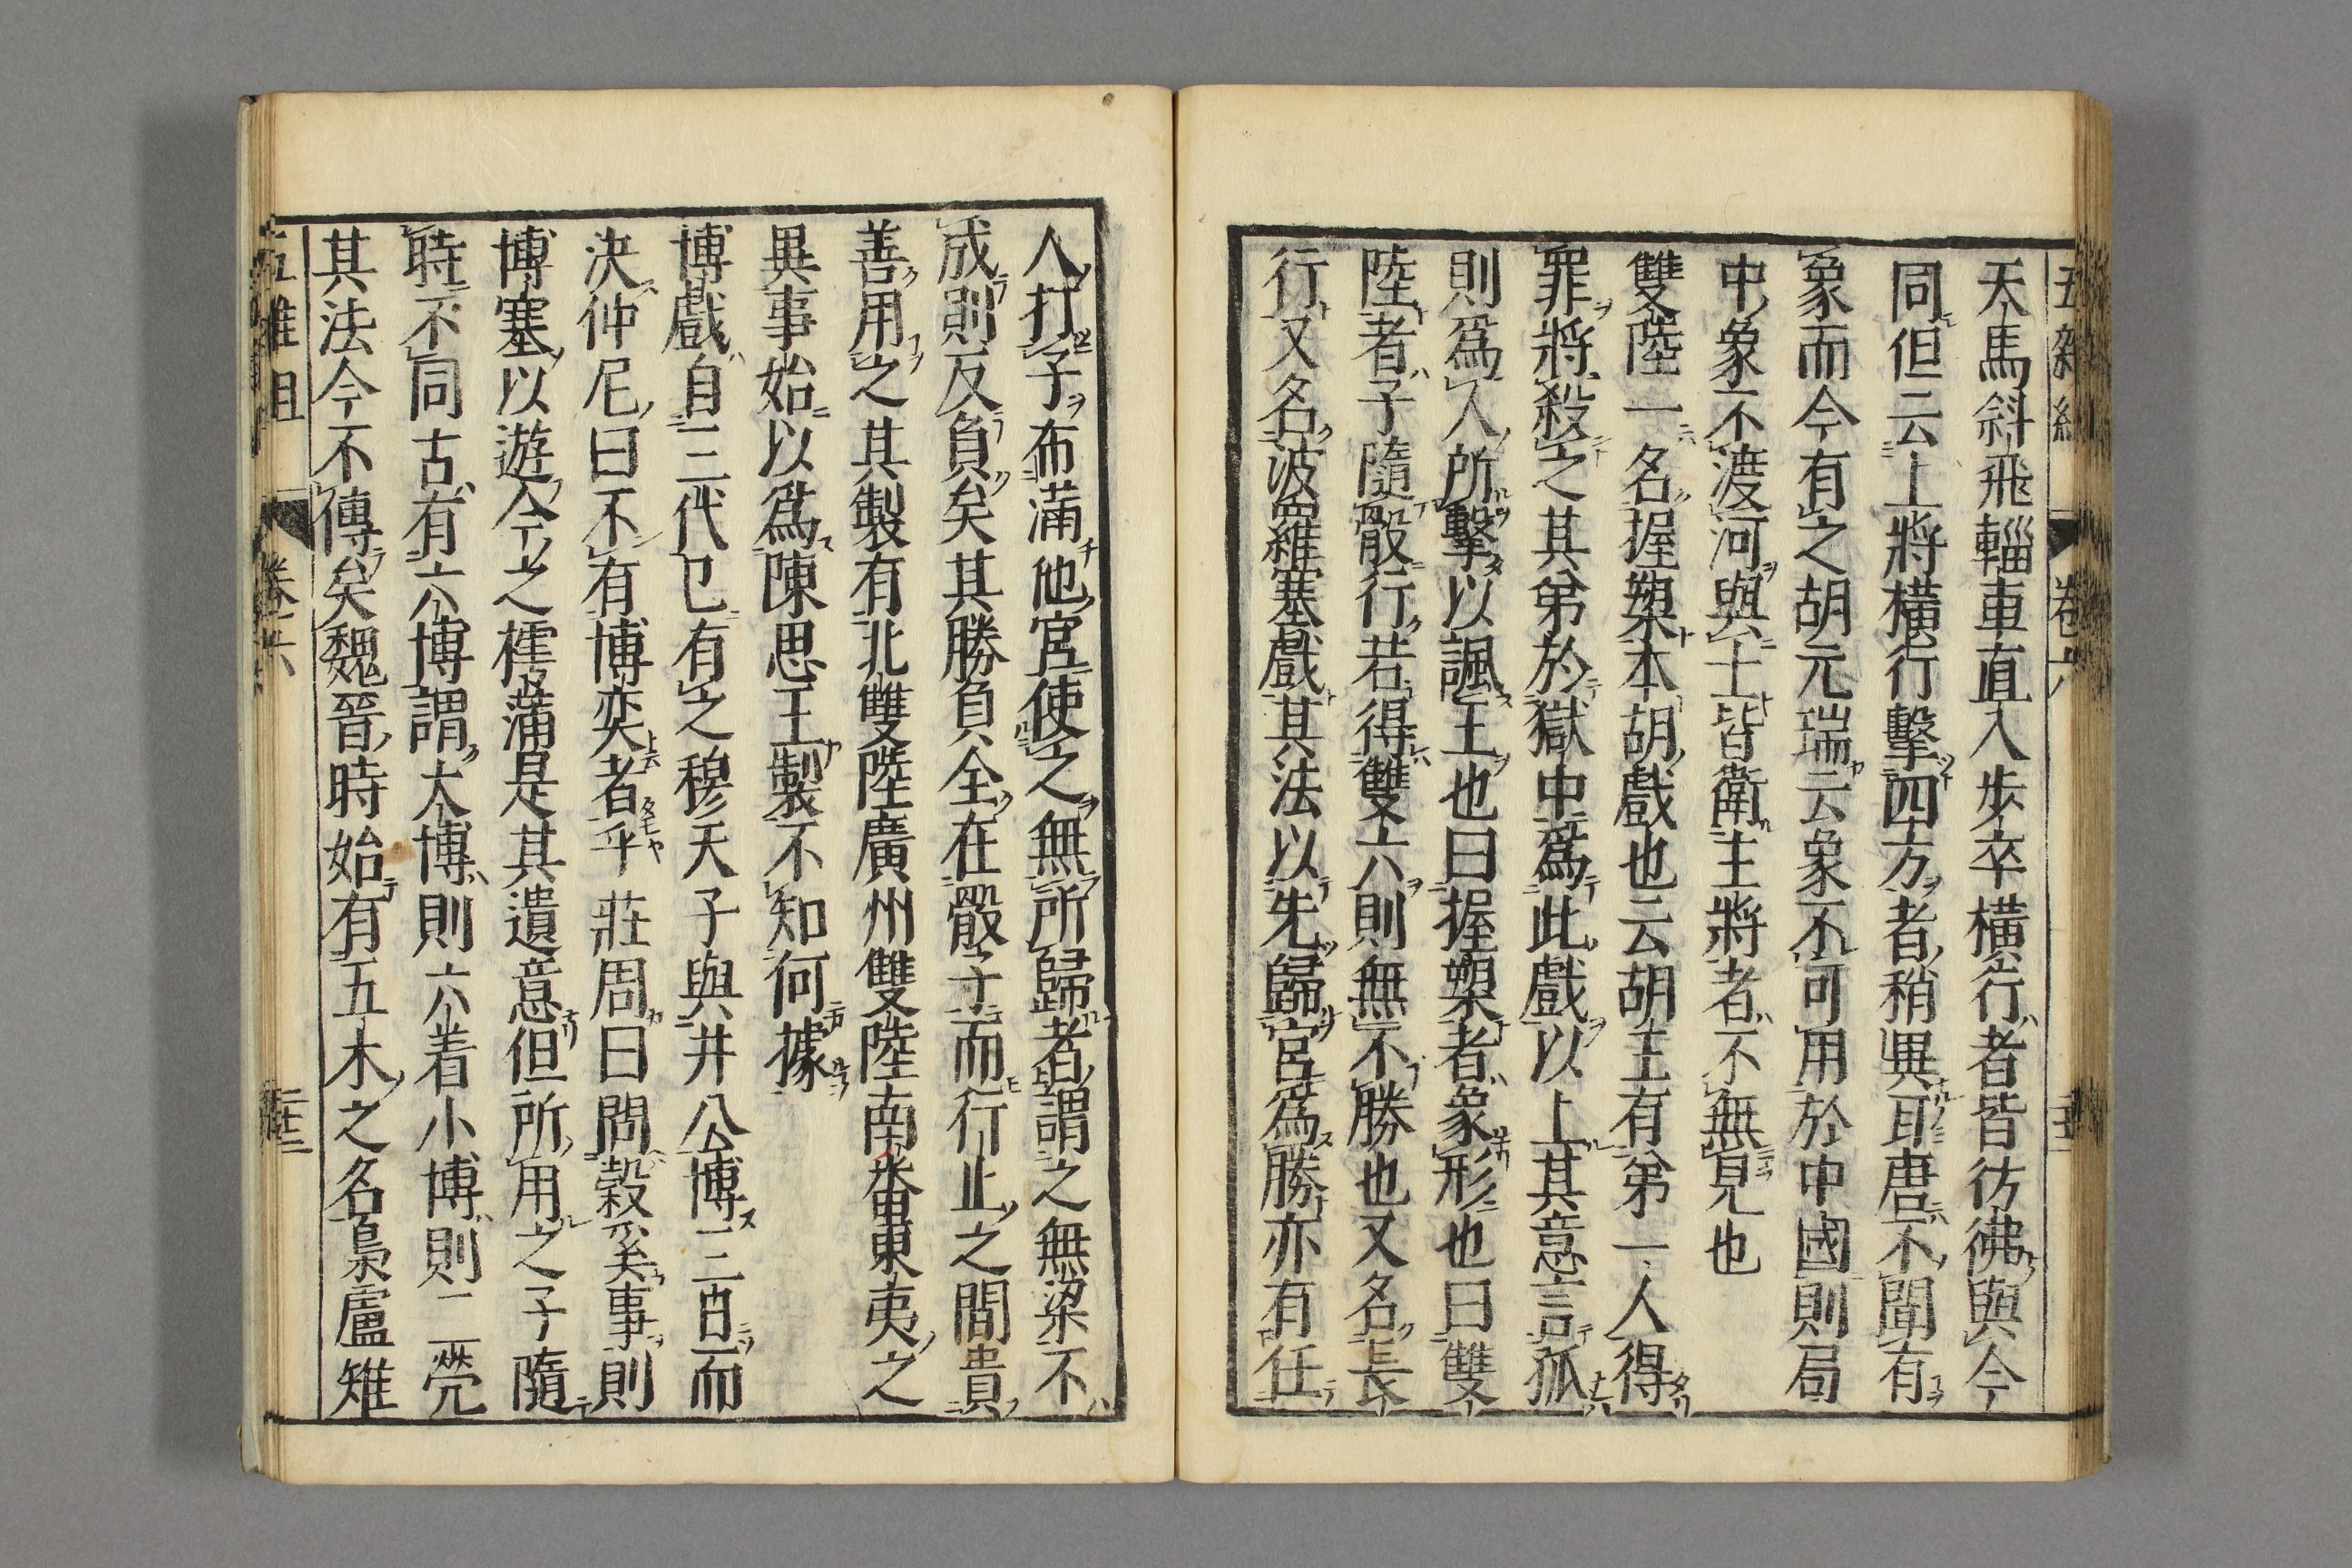 天馬斜飛輜車直入歩卒橫行者皆彷彿與今
同但云上將橫行擊四方者稍異耳唐不聞有
象而今有之胡元瑞云象不可用於中國則局
中象不渡河與士皆衛主將者不無見也
雙陸一名握槊本胡戲也云胡王有弟一人得
罪將殺之其弟於獄中為此戲以上其意言孤
則爲人所擊以諷王也曰握槊者象形也曰雙
陸者子隨骰行若得雙六則無不勝也又名長
行又名波羅塞戲其法以先歸宮爲勝亦有任
人打子布滿他宮使之無所歸者謂之無梁不
成則反負矣其勝負全在骰子而行止之間貴
善用之其製有北雙陸廣州雙陸南番東夷之
異事始以爲陳思王製不知何據
博戲自三代已有之穆天子與井公博三百而
決仲尼曰不有博奕者乎莊周曰問穀奚事則
博塞以遊今之樗蒲是其遺意但所用之子隨
時不同古有六博謂大博則六着小博則二煢
其法今不傳矣魏晉時始有五木之名梟盧雉
五雜俎 卷六